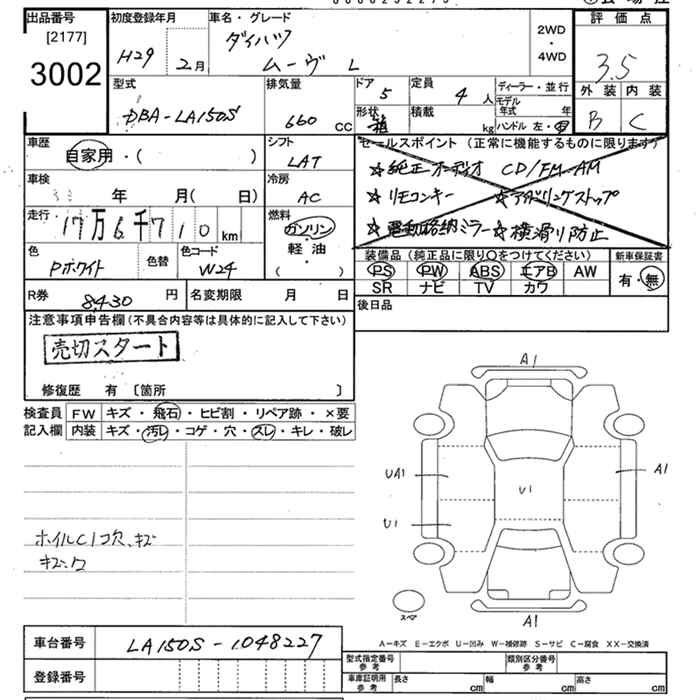 出品番号 初度登録年月 車名・グレード 評価点
[2177] ダイハツ 2WD
3002 H29年 2月 ムーヴ L ・ 4WD 3.5
型式 排気量 ドア 定員 ディーラー・並行 外装 内装
DBA-LA150S 660 CC 5 4人 モデル年式 年 B C
形状 箱 積載 kg ハンドル 左・右
車歴 シフト セールスポイント (正常に機能するものに限ります)
自家用・( ) LAT ☆純正オーディオ CD/FM-AM
車検 冷房 ☆リモコンキー ☆アイドリングストップ
年 月( 日) AC ☆電動格納ミラー ☆横滑り防止
走行 17万6千710km 燃料 ガソリン・軽油・( )
色 色替 色コード 装備品 (純正品に限り○をつけてください) 新車保証書
Pホワイト W24 PS PW ABS エアB AW 有・無
SR ナビ TV カワ
R券 8,430 円 名変期限 月 日 後日品
注意事項申告欄(不具合内容等は具体的に記入して下さい)
売切スタート
修復歴 有 〔箇所 〕
検査員 FW キズ・飛石・ヒビ割・リペア跡・×要
記入欄 内装 キズ・汚レ・コゲ・穴・スレ・キレ・破レ
A1
UA1 A1
U1
U1
ホイルC1欠、キズ
スペア
A1
A-キズ E-エクボ U-凹み W-補修跡 S-サビ C-腐食 XX-交換済
車台番号 LA150S-1048227
登録番号
型式指定番号 参考 類別区分番号 参考
車庫証明用 参考 長さ cm 幅 cm 高さ cm